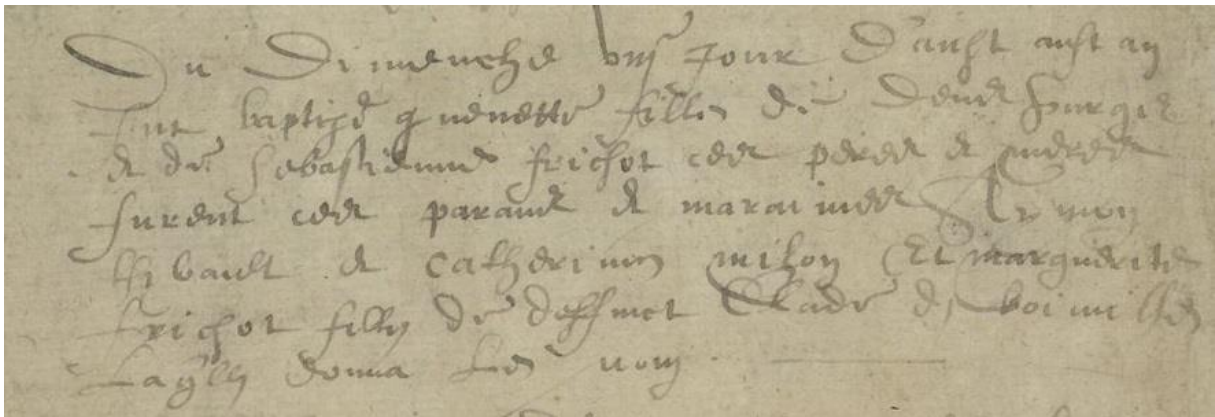 Du Dimenche viij Jour Daust aust an
fut baptizé quenette fille de Denis fourgie
& de Sebastienne frichot ces peres & meres
furent ces parains & maraines Aymon
thibault & catherinne milon Et marguerite
frichot fille de deffunct Clade de
Laqlle donna Le nom